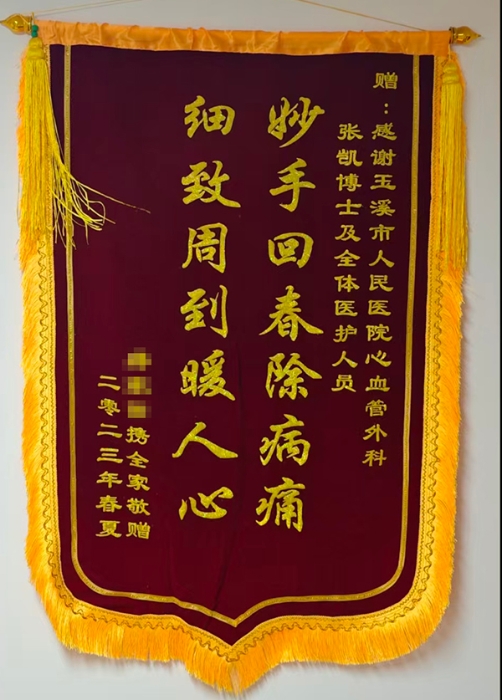 赠：感谢玉溪市人民医院心血管外科
张凯博士及全体医护人员
妙手回春除病痛
细致周到暖人心
携全家敬赠
二零二三年春夏